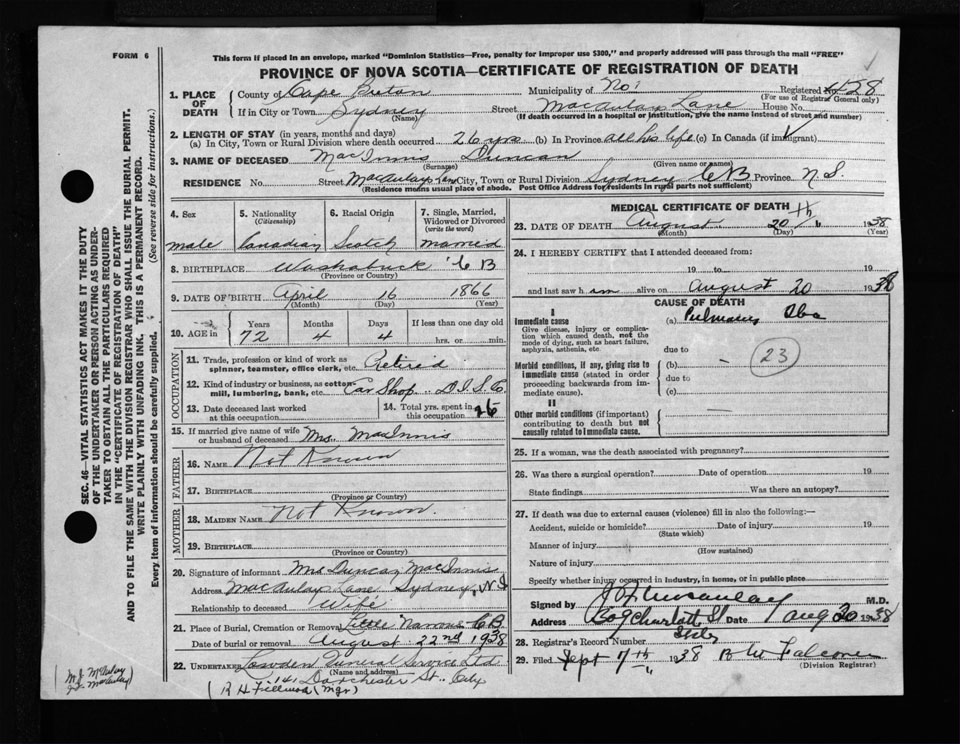 FORM 6
This form if placed in an envelope, marked "Dominion Statistics—Free, penalty for improper use $300," and properly addressed will pass through the mail "FREE"
PROVINCE OF NOVA SCOTIA—CERTIFICATE OF REGISTRATION OF DEATH
SEC. 46—VITAL STATISTICS ACT MAKES IT THE DUTY
OF THE UNDERTAKER OR PERSON ACTING AS UNDER-
TAKER TO OBTAIN ALL THE PARTICULARS REQUIRED
IN THE "CERTIFICATE OF REGISTRATION OF DEATH"
AND TO FILE THE SAME WITH THE DIVISION REGISTRAR WHO SHALL ISSUE THE BURIAL PERMIT.
WRITE PLAINLY WITH UNFADING INK. THIS IS A PERMANENT RECORD.
Every item of information should be carefully supplied. (See reverse side for instructions.)
1. PLACE OF DEATH
County of Cape Breton Municipality of No 1 Registered No. 428
(For use of Registrar General only)
If in City or Town Sydney Street MacAulay Lane House No.
(Name) (If death occurred in a hospital or institution, give the name instead of street and number)
2. LENGTH OF STAY (in years, months and days)
(a) In City, Town or Rural Division where death occurred 26 yrs (b) In Province all his life (c) In Canada (if immigrant)
3. NAME OF DECEASED MacInnis Duncan
(Surname) (Given name or names)
RESIDENCE No. Street MacAulay Lane City, Town or Rural Division Sydney CB Province N.S.
(Residence means usual place of abode. Post Office Address for residents in rural parts not sufficient)
4. Sex
male
5. Nationality
(Citizenship)
Canadian
6. Racial Origin
Scotch
7. Single, Married,
Widowed or Divorced
(write the word)
married
8. BIRTHPLACE Washabuck CB
(Province or Country)
9. DATE OF BIRTH April 16 1866
(Month) (Day) (Year)
10. AGE in Years Months Days If less than one day old
72 4 4 hrs. or min.
OCCUPATION
11. Trade, profession or kind of work as
spinner, teamster, office clerk, etc. Retired
12. Kind of industry or business, as cotton
mill, lumbering, bank, etc. Car Shop D.I.S.Co.
13. Date deceased last worked
at this occupation
14. Total yrs. spent in
this occupation 26
15. If married give name of wife
or husband of deceased Mrs. MacInnis
FATHER
16. NAME Not Known
17. BIRTHPLACE
(Province or Country)
MOTHER
18. MAIDEN NAME Not Known.
19. BIRTHPLACE
(Province or Country)
20. Signature of informant Mrs Duncan MacInnis
Address MacAulay Lane Sydney, N.S
Relationship to deceased Wife
21. Place of Burial, Cremation or Removal Little Narrows C.B.
Date of burial or removal August 22nd 1938
22. UNDERTAKER Lowden Funeral Service Ltd
(Name and address)
141 Dorchester St., City
(R H Fillmore (Mgr)
(M.J. McAulay
J.F. McAulay)
MEDICAL CERTIFICATE OF DEATH
23. DATE OF DEATH August 20th 1938
(Month) (Day) (Year)
24. I HEREBY CERTIFY that I attended deceased from
19 to 19
and last saw him alive on August 20 1938
CAUSE OF DEATH
I
Immediate cause
Give disease, injury or complica-
tion which caused death, not the
mode of dying, such as heart failure,
asphyxia, asthenia, etc.
(a)
due to
Morbid conditions, if any, giving rise to
immediate cause (stated in order
proceeding backwards from im-
mediate cause).
(b)
due to
(c)
23
II
Other morbid conditions (if important)
contributing to death but not
causally related to immediate cause.
25. If a woman, was the death associated with pregnancy?
26. Was there a surgical operation? Date of operation 19
State findings Was there an autopsy?
27. If death was due to external causes (violence) fill in also the following:—
Accident, suicide or homicide? Date of injury 19
(State which)
Manner of injury
(How sustained)
Nature of injury
Specify whether injury occurred in industry, in home, or in public place
Signed by M.D.
Address Charlotte St Date Aug 20 1938
28. Registrar's Record Number
29. Filed Sept 17th 1938 B W Falconer
(Division Registrar)